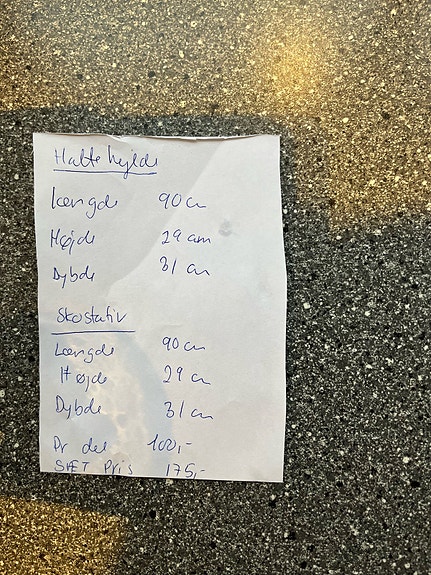 Hatte hylde
Længde 90 cm
Højde 29 cm
Dybde 31 cm
Skostativ
Længde 90 cm
Højde 29 cm
Dybde 31 cm
Pr del 100,-
SÆT Pris 175,-